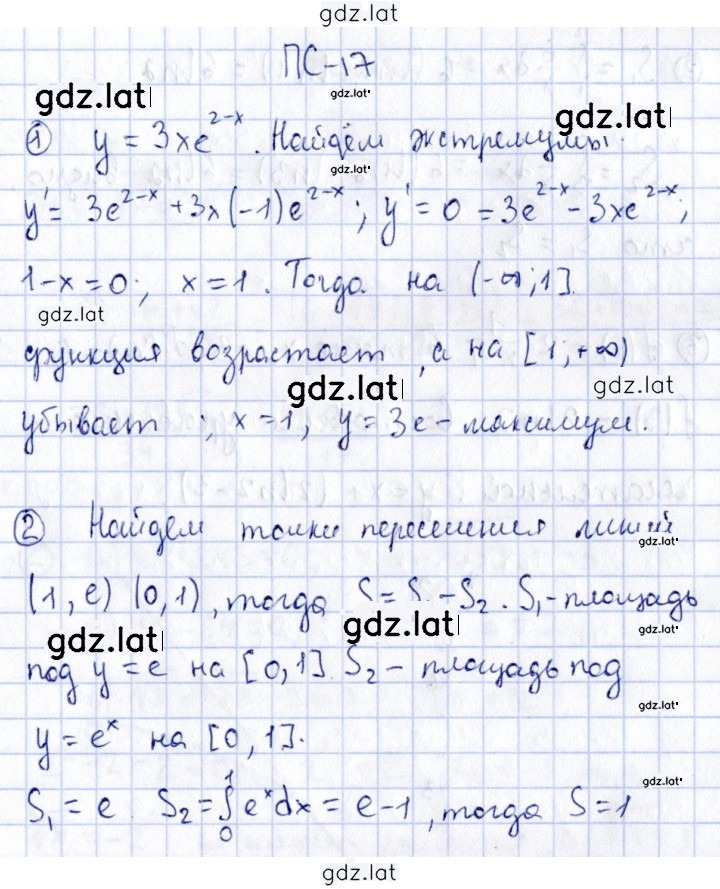 gdz.lat
ПС-17
gdz.lat
gdz.lat
gdz.lat
① y = 3xe^{2-x}. Найдём экстремумы.
gdz.lat
y' = 3e^{2-x} + 3x(-1)e^{2-x}; y' = 0 = 3e^{2-x} - 3xe^{2-x};
1-x = 0; x = 1. Тогда на (-∞; 1]
gdz.lat
функция возрастает, а на [1, +∞)
gdz.lat
gdz.lat
убывает; x = 1, y = 3e - максимум.
② Найдем точки пересечения линий
gdz.lat
(1, e) (0, 1), тогда S = S - S₂. S₁ - площадь
gdz.lat
gdz.lat
gdz.lat
под y = e на [0, 1]. S₂ - площадь под
gdz.lat
y = e^x на [0, 1].
gdz.lat
S₁ = e. S₂ = ∫₀¹ e^x dx = e - 1, тогда S = 1
gdz.lat